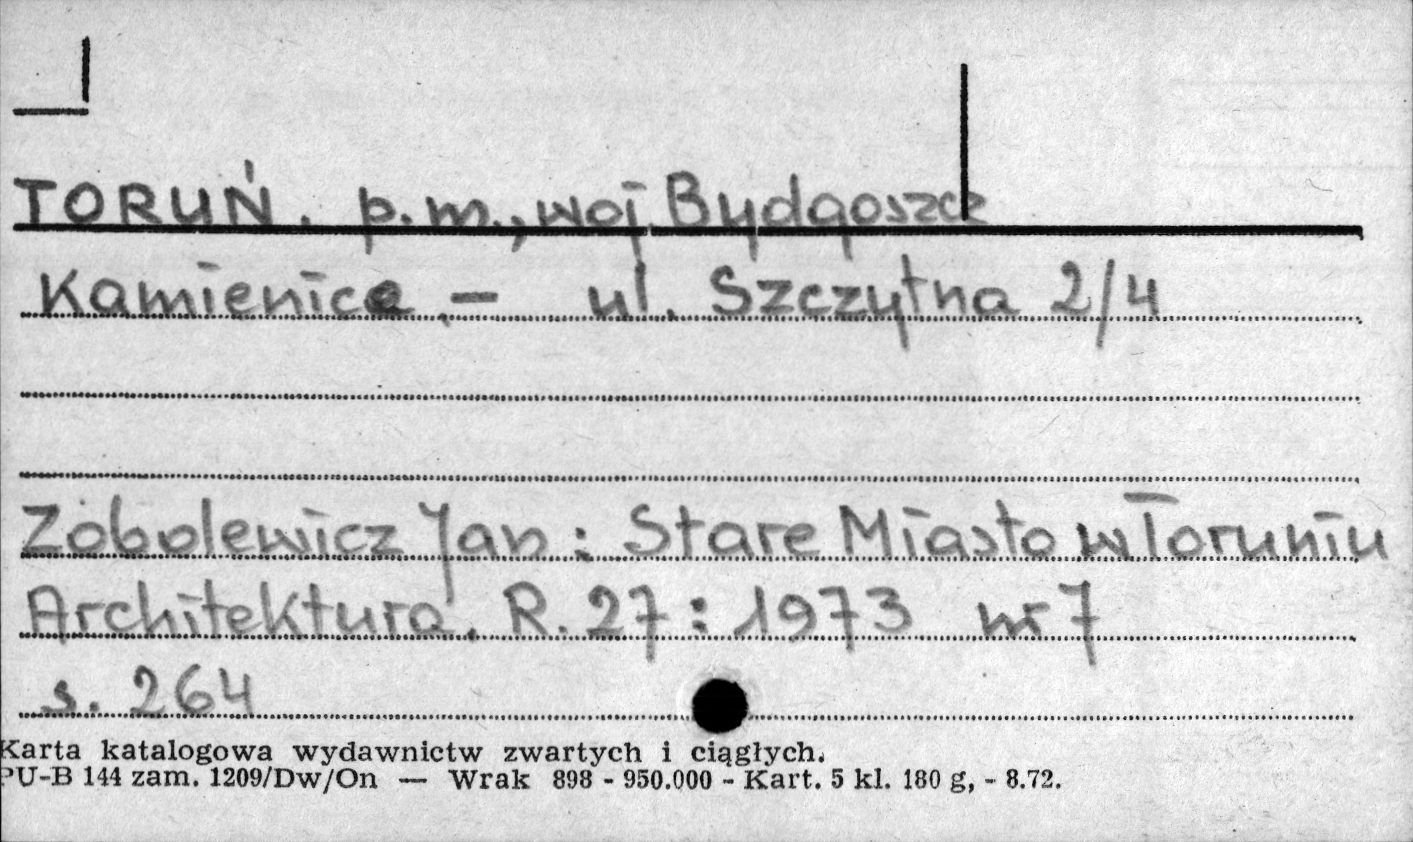 TORUŃ. p.m., woj Bydgoszcz
Kamienice. — ul. Szczytna 2/4
Zobolewicz Jan : Stare Miasto w Toruniu
Architektura. R. 27 : 1973 nr 7
s. 264
Karta katalogowa wydawnictw zwartych i ciągłych.
PU-B 144 zam. 1209/Dw/On — Wrak 898 - 950.000 - Kart. 5 kl. 180 g, - 8.72.